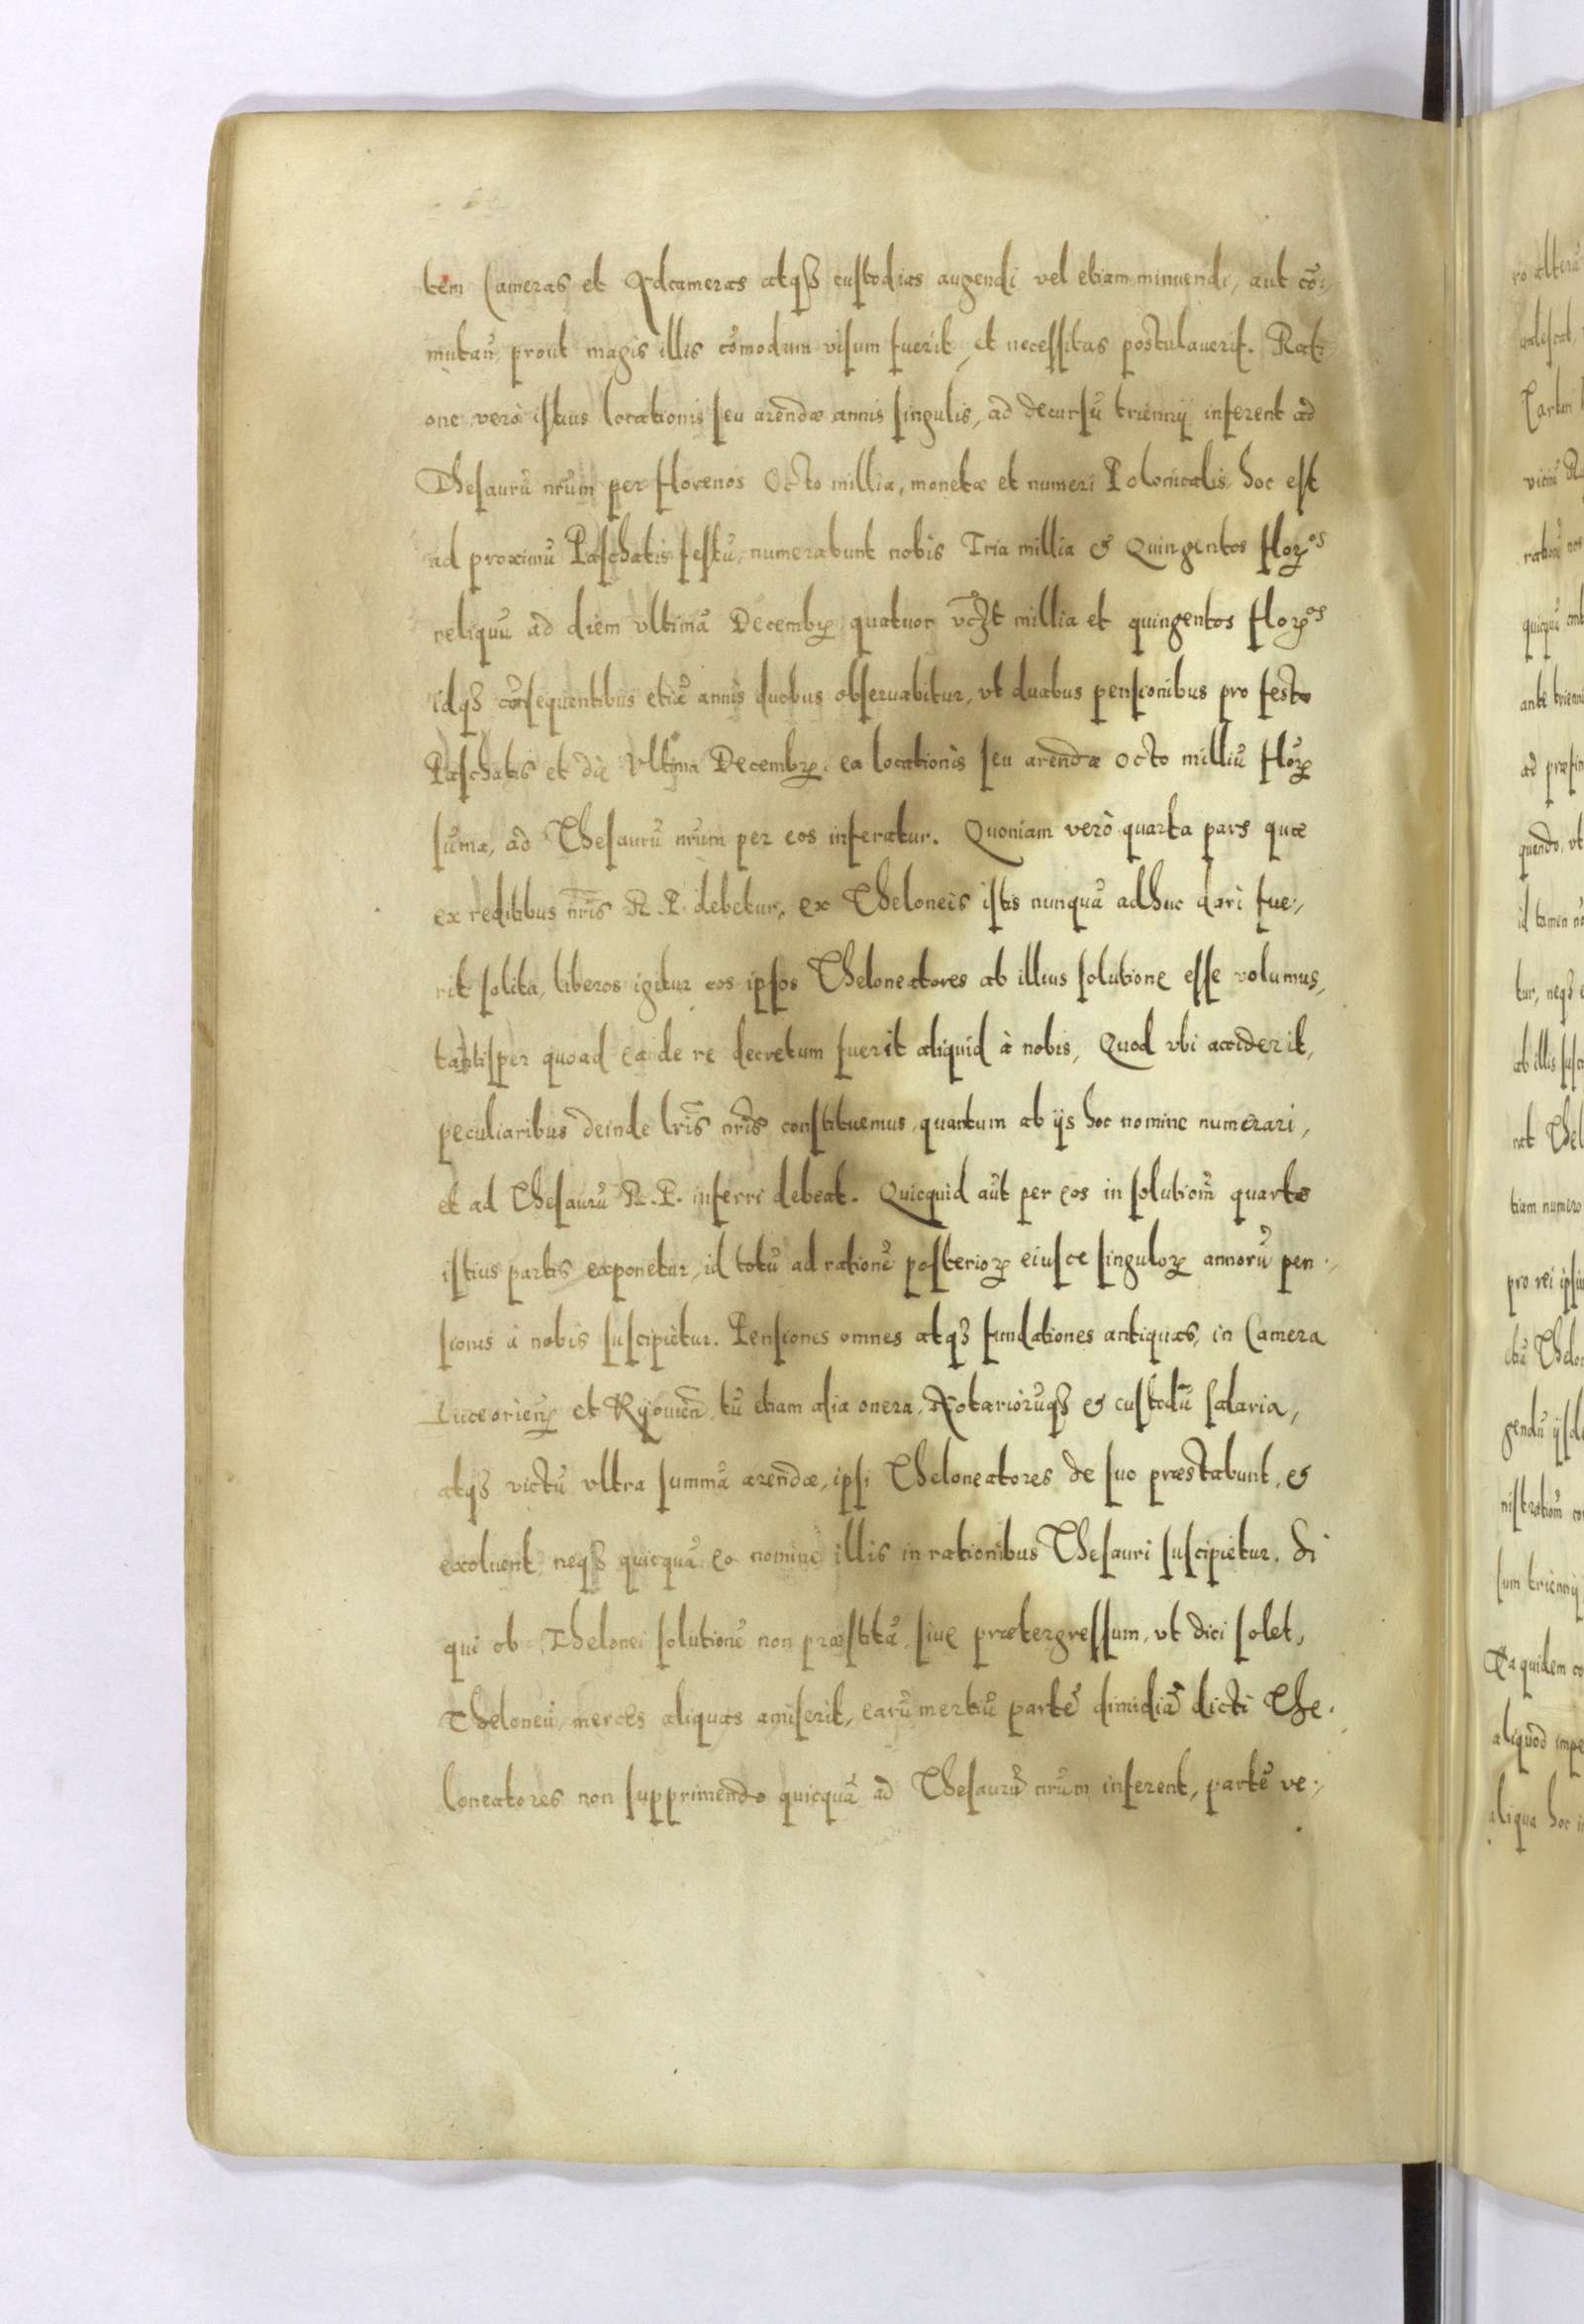 tem Cameras et Adcameras atqꝫ custodias augendi vel etiam minuendi, aut cõ,
mutan prout magis illis cõmodum visum fuerit, et necessitas postulauerit. Rati
one verò istius locationis seu arendæ annis singulis, ad decursũ triennij inferent ad
Thesaurũ nr̃um per florenos Octo millia, monetæ et numeri Polonicalis, hoc est
ad proximũ Paschatis festũ, numerabunt nobis Tria millia & Quingentos floꝝos
reliquũ ad diem vltimã Decembꝝ quatuor vcꝫt millia et quingentos floꝝos
idqꝫ cõsequentibus etiã annis duobus obseruabitur, vt duabus pensionibus pro festo
Paschatis et die Vltima Decembꝝ. ea locationis seu arendæ octo milliũ floꝝ
sũma, ad Thesaurũ nr̃um per eos inferatur. Quoniam verò quarta pars quæ
ex reditibus nr̃is R. P. debetur, ex Theloneis istis nunquã adhuc dari fue,
rit solita, liberos igitur eos ipsos Theloneatores ab illius solutione esse volumus,
tantisper quoad ea de re decretum fuerit aliquid à nobis, Quod vbi acciderit,
peculiaribus deinde lr̃is nr̃is constituemus, quantum ab ijs hoc nomine numerari,
et ad Thesaurũ R. P. inferri debeat. Quicquid aũt per eos in solutionẽ quartæ
istius partis exponetur, id totũ ad rationẽ posterioꝝ eiusce singuloꝝ annorũ pen,
sionis à nobis suscipietur. Pensiones omnes atqꝫ fundationes antiquas, in Camera
Luceorieñ et Kijouieñ, tũ etiam alia onera, Notariorũqꝫ & custodũ salaria,
atqꝫ victũ vltra summã arendæ, ipsi Theloneatores de suo præstabunt, &
exoluent, neqꝫ quicquã eo nomine illis in rationibus Thesauri suscipietur. Si
qui ob Thelonei solutionẽ non præstitã, siue prætergressum, vt dici solet,
Theloneũ, merces aliquas amiserit, earũ mertiũ partẽ dimidiã dicti The,
loneatores non supprimendo quicquã ad Thesaurũ nr̃um inferent, partẽ ve,